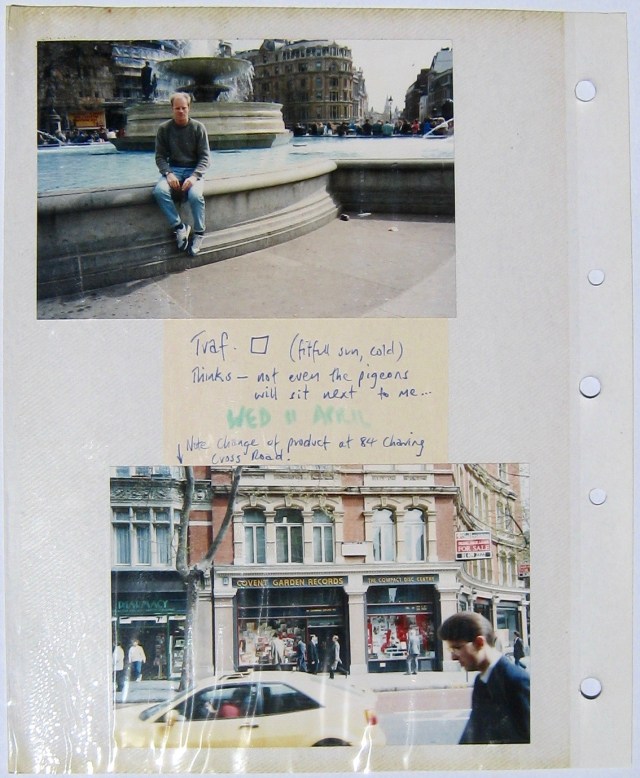 Traf. □ (fitfull sun, cold)
Thinks – not even the pigeons
will sit next to me...
WED 11 APRIL
↓ Note change of product at 84 Charing
Cross Road.
PHARMACY
COVENT GARDEN RECORDS
THE COMPACT DISC CENTRE
FOR SALE